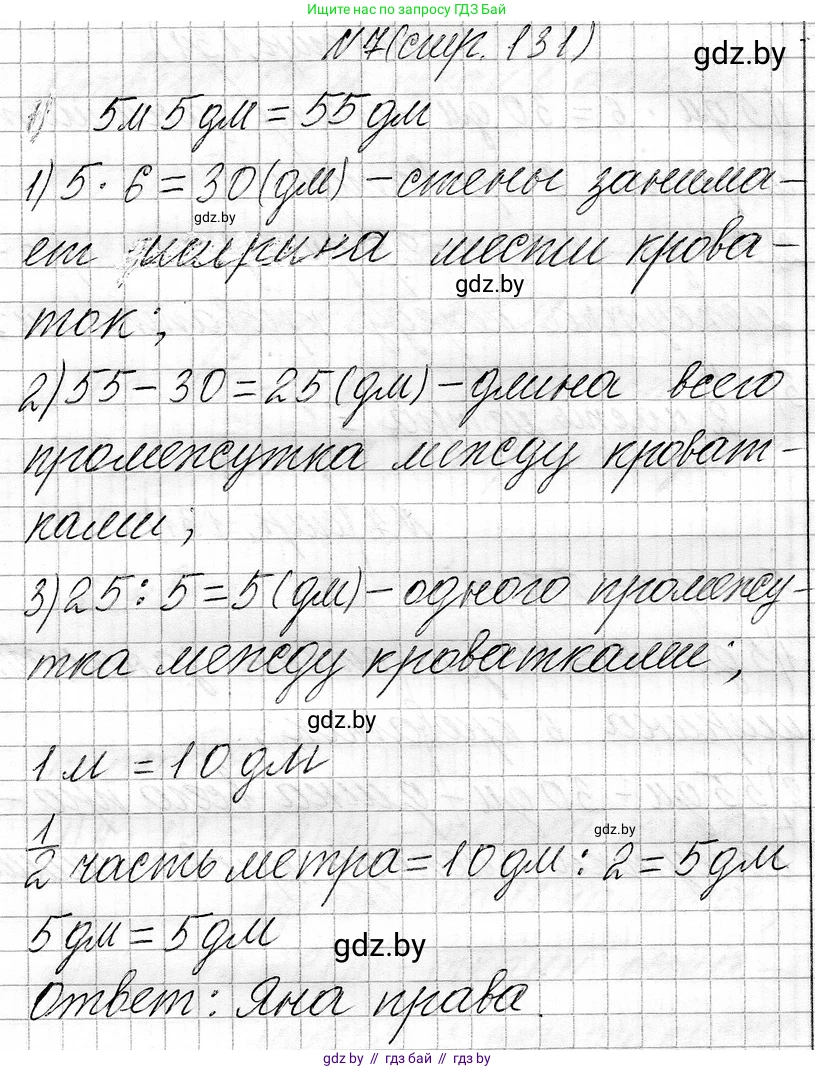 Ищите нас по запросу ГДЗ Бай
№7(стр. 131)
gdz.by
5м 5дм = 55дм
1) 5 · 6 = 30(дм) – стены занима-
gdz.by
ет ширина шести крова-
gdz.by
ток;
2) 55 – 30 = 25(дм) – длина всего
промежутка между кроват-
ками;
3) 25 : 5 = 5(дм) – одного промежу-
тка между кроватками;
gdz.by
1м = 10дм
gdz.by
1/2 часть метра = 10дм : 2 = 5дм
5дм = 5дм
gdz.by
Ответ: Яна права.
gdz.by // гдз бай // gdz.by